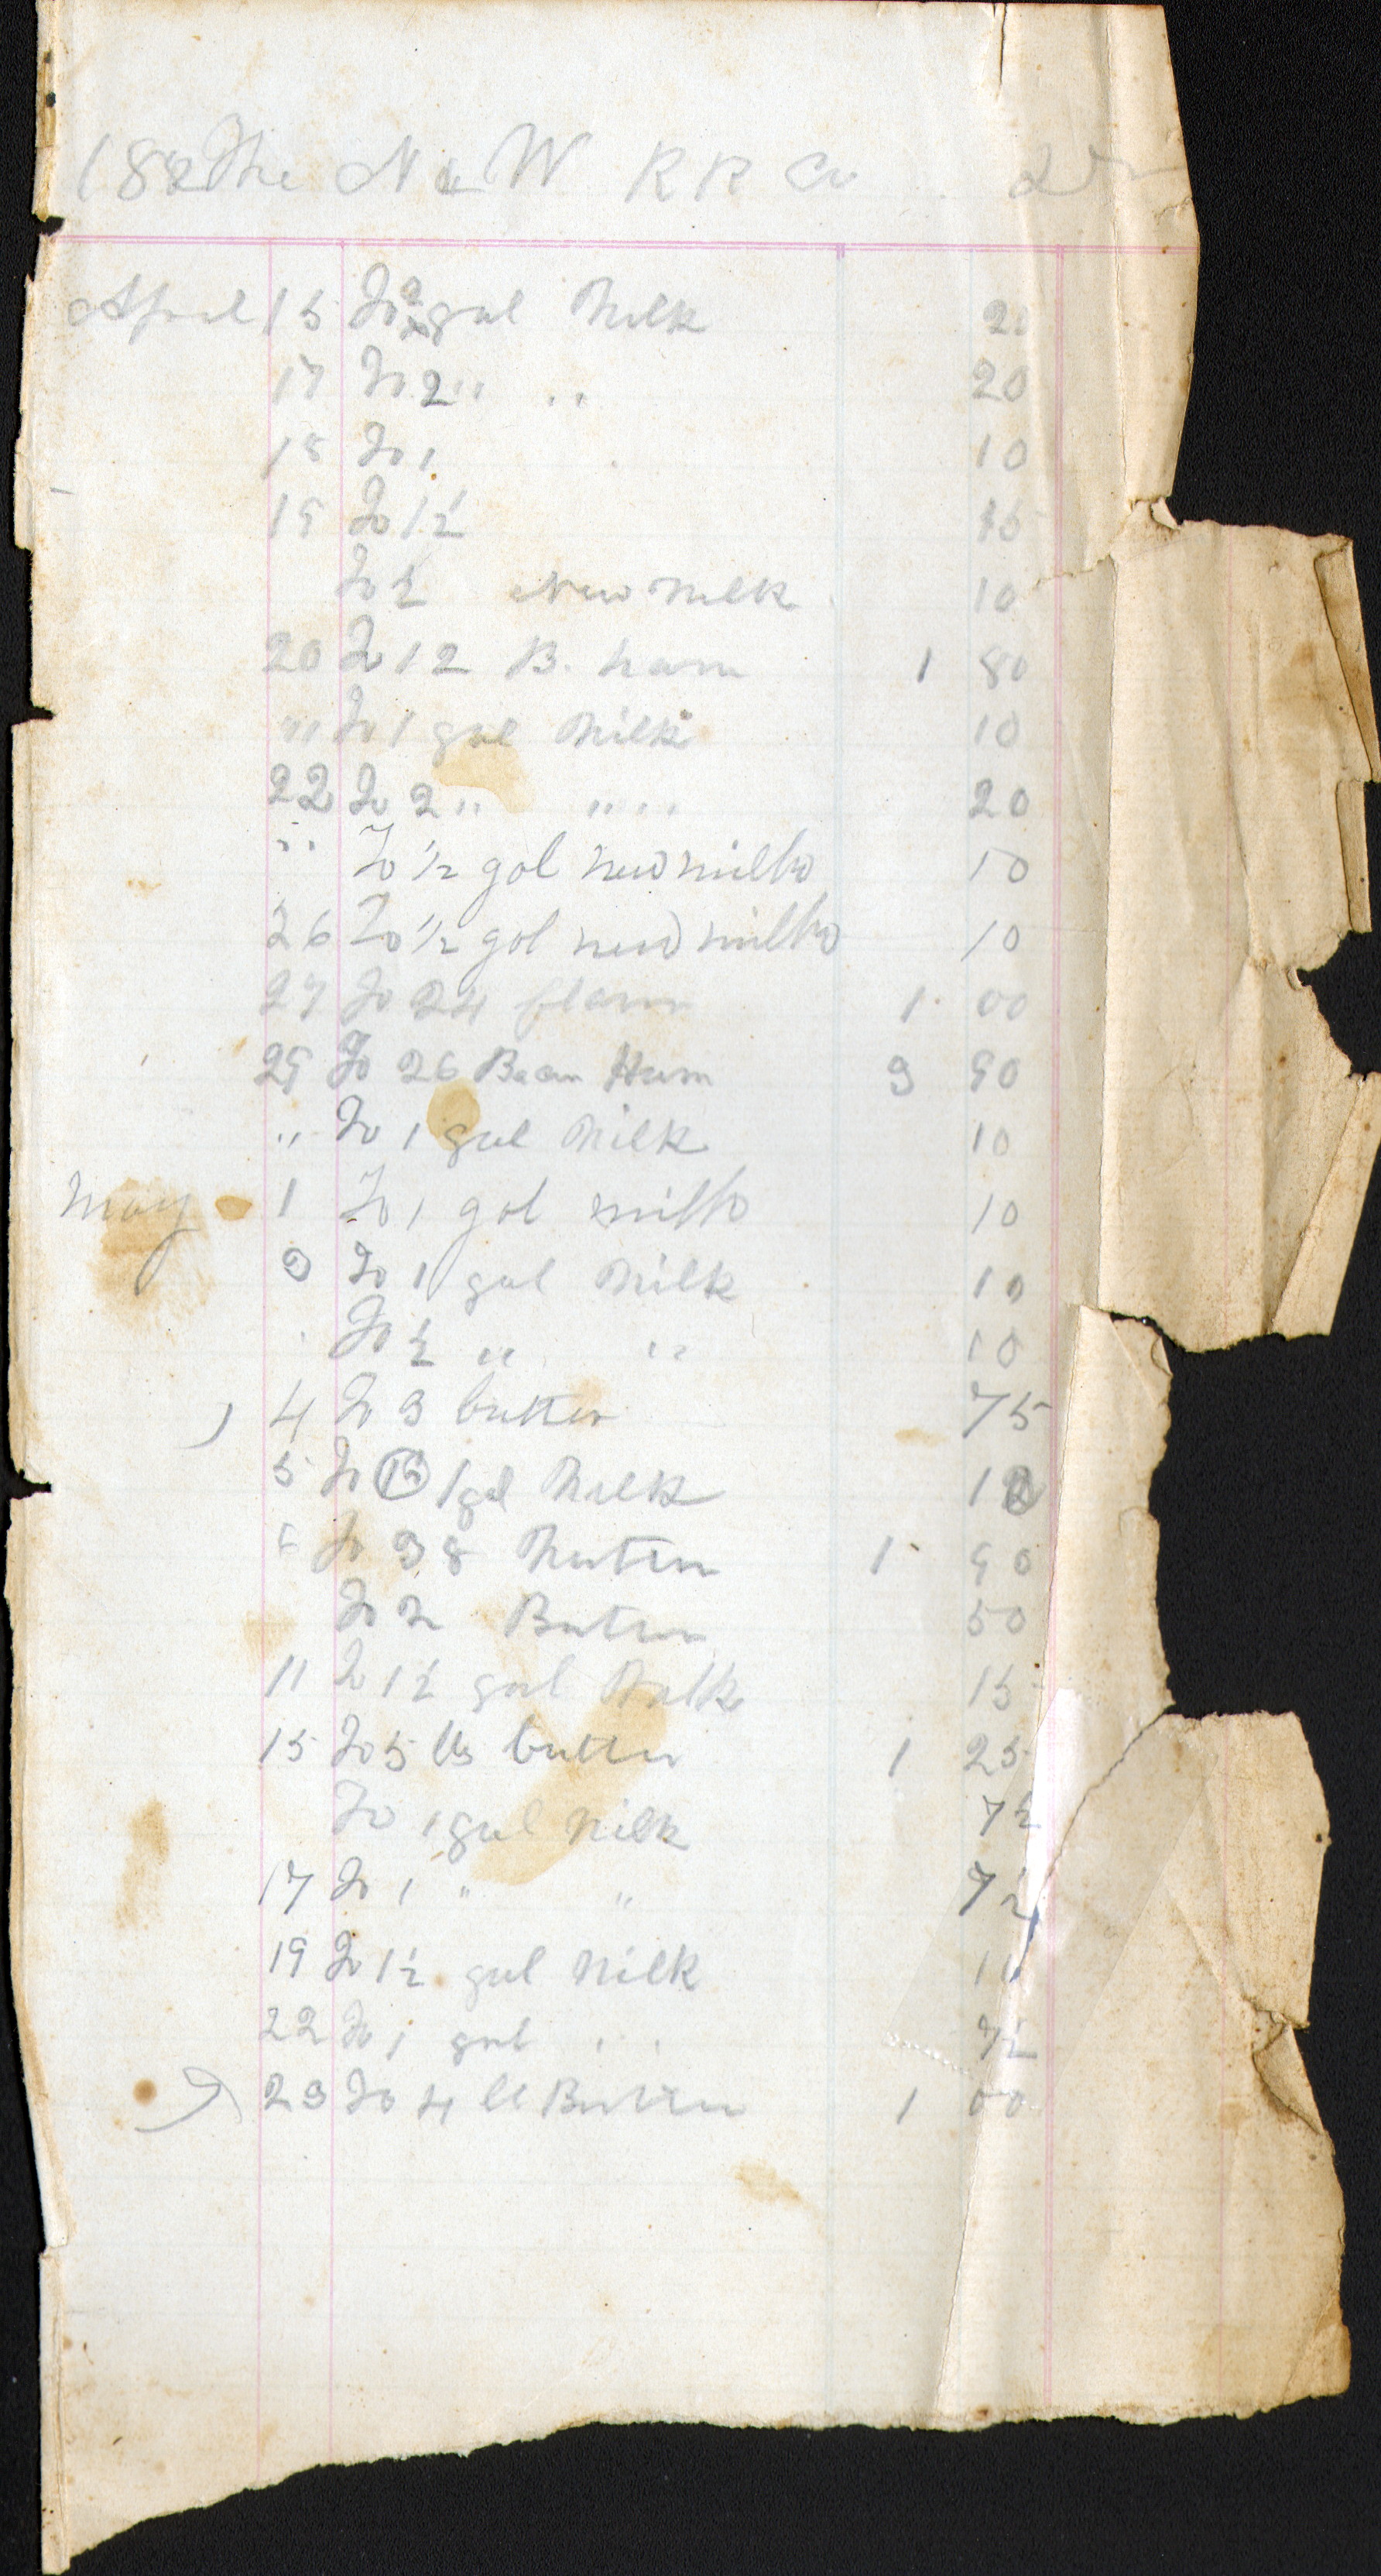 188 The N & W R R Co Dr
April 15 To 2 gal Milk 20
17 To 2 " " 20
18 To 1 10
19 To 1½ 15
To ½ New Milk 10
20 To 12 B. ham 1 80
" To 1 gal Milk 10
22 To 2 " " " 20
" To ½ gal new milk 10
26 To ½ gal new milk 10
27 To 24 1 00
29 To 26 Bacon Ham 3 90
" To 1 gal Milk 10
May 1 To 1 gal milk 10
3 To 1 gal Milk 10
To ½ " " 10
4 To 3 butter 75
5 To 1 gal Milk 10
6 To 38 Muten 1 90
To 2 Buter 50
11 To 1½ gal Milk 15
15 To 5 lbs butter 1 25
To 1 gal Milk 7½
17 To 1 " " 7½
19 To 1½ gal Milk
22 To 1 gal " 7½
23 To 4 lb Butter 1 00